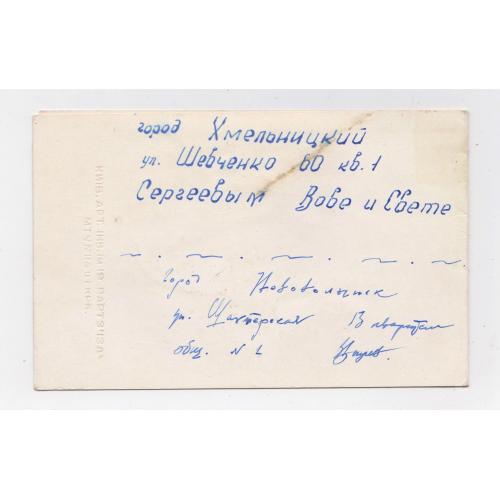 город Хмельницкий
ул. Шевченко 60 кв. 1
Сергеевым Вове и Свете
город Нововолынск
ул. Шахтерская В квартал
общ. N 2